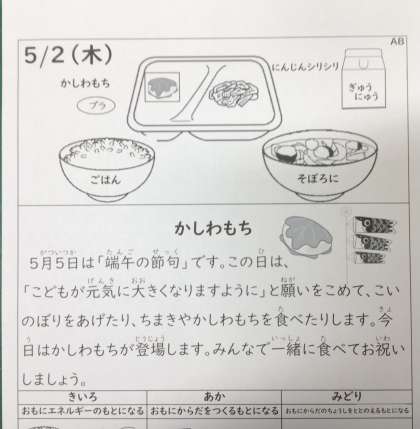 AB
5/2(木)
かしわもち
プラ
にんじんシリシリ
ぎゅう
にゅう
ごはん
そぼろに
かしわもち
がついつか たんご せっく ひ
5月5日は「端午の節句」です。この日は、
げんき おお ねが
「こどもが元気に大きくなりますように」と願いをこめて、こい
た きょ
のぼりをあげたり、ちまきやかしわもちを食べたりします。今
う とうじょう いっしょ た いわ
日はかしわもちが登場します。みんなで一緒に食べてお祝い
しましょう。
きいろ あか みどり
おもにエネルギーのもとになる おもにからだをつくるもとになる おもにからだのちょうしをととのえるもとになる